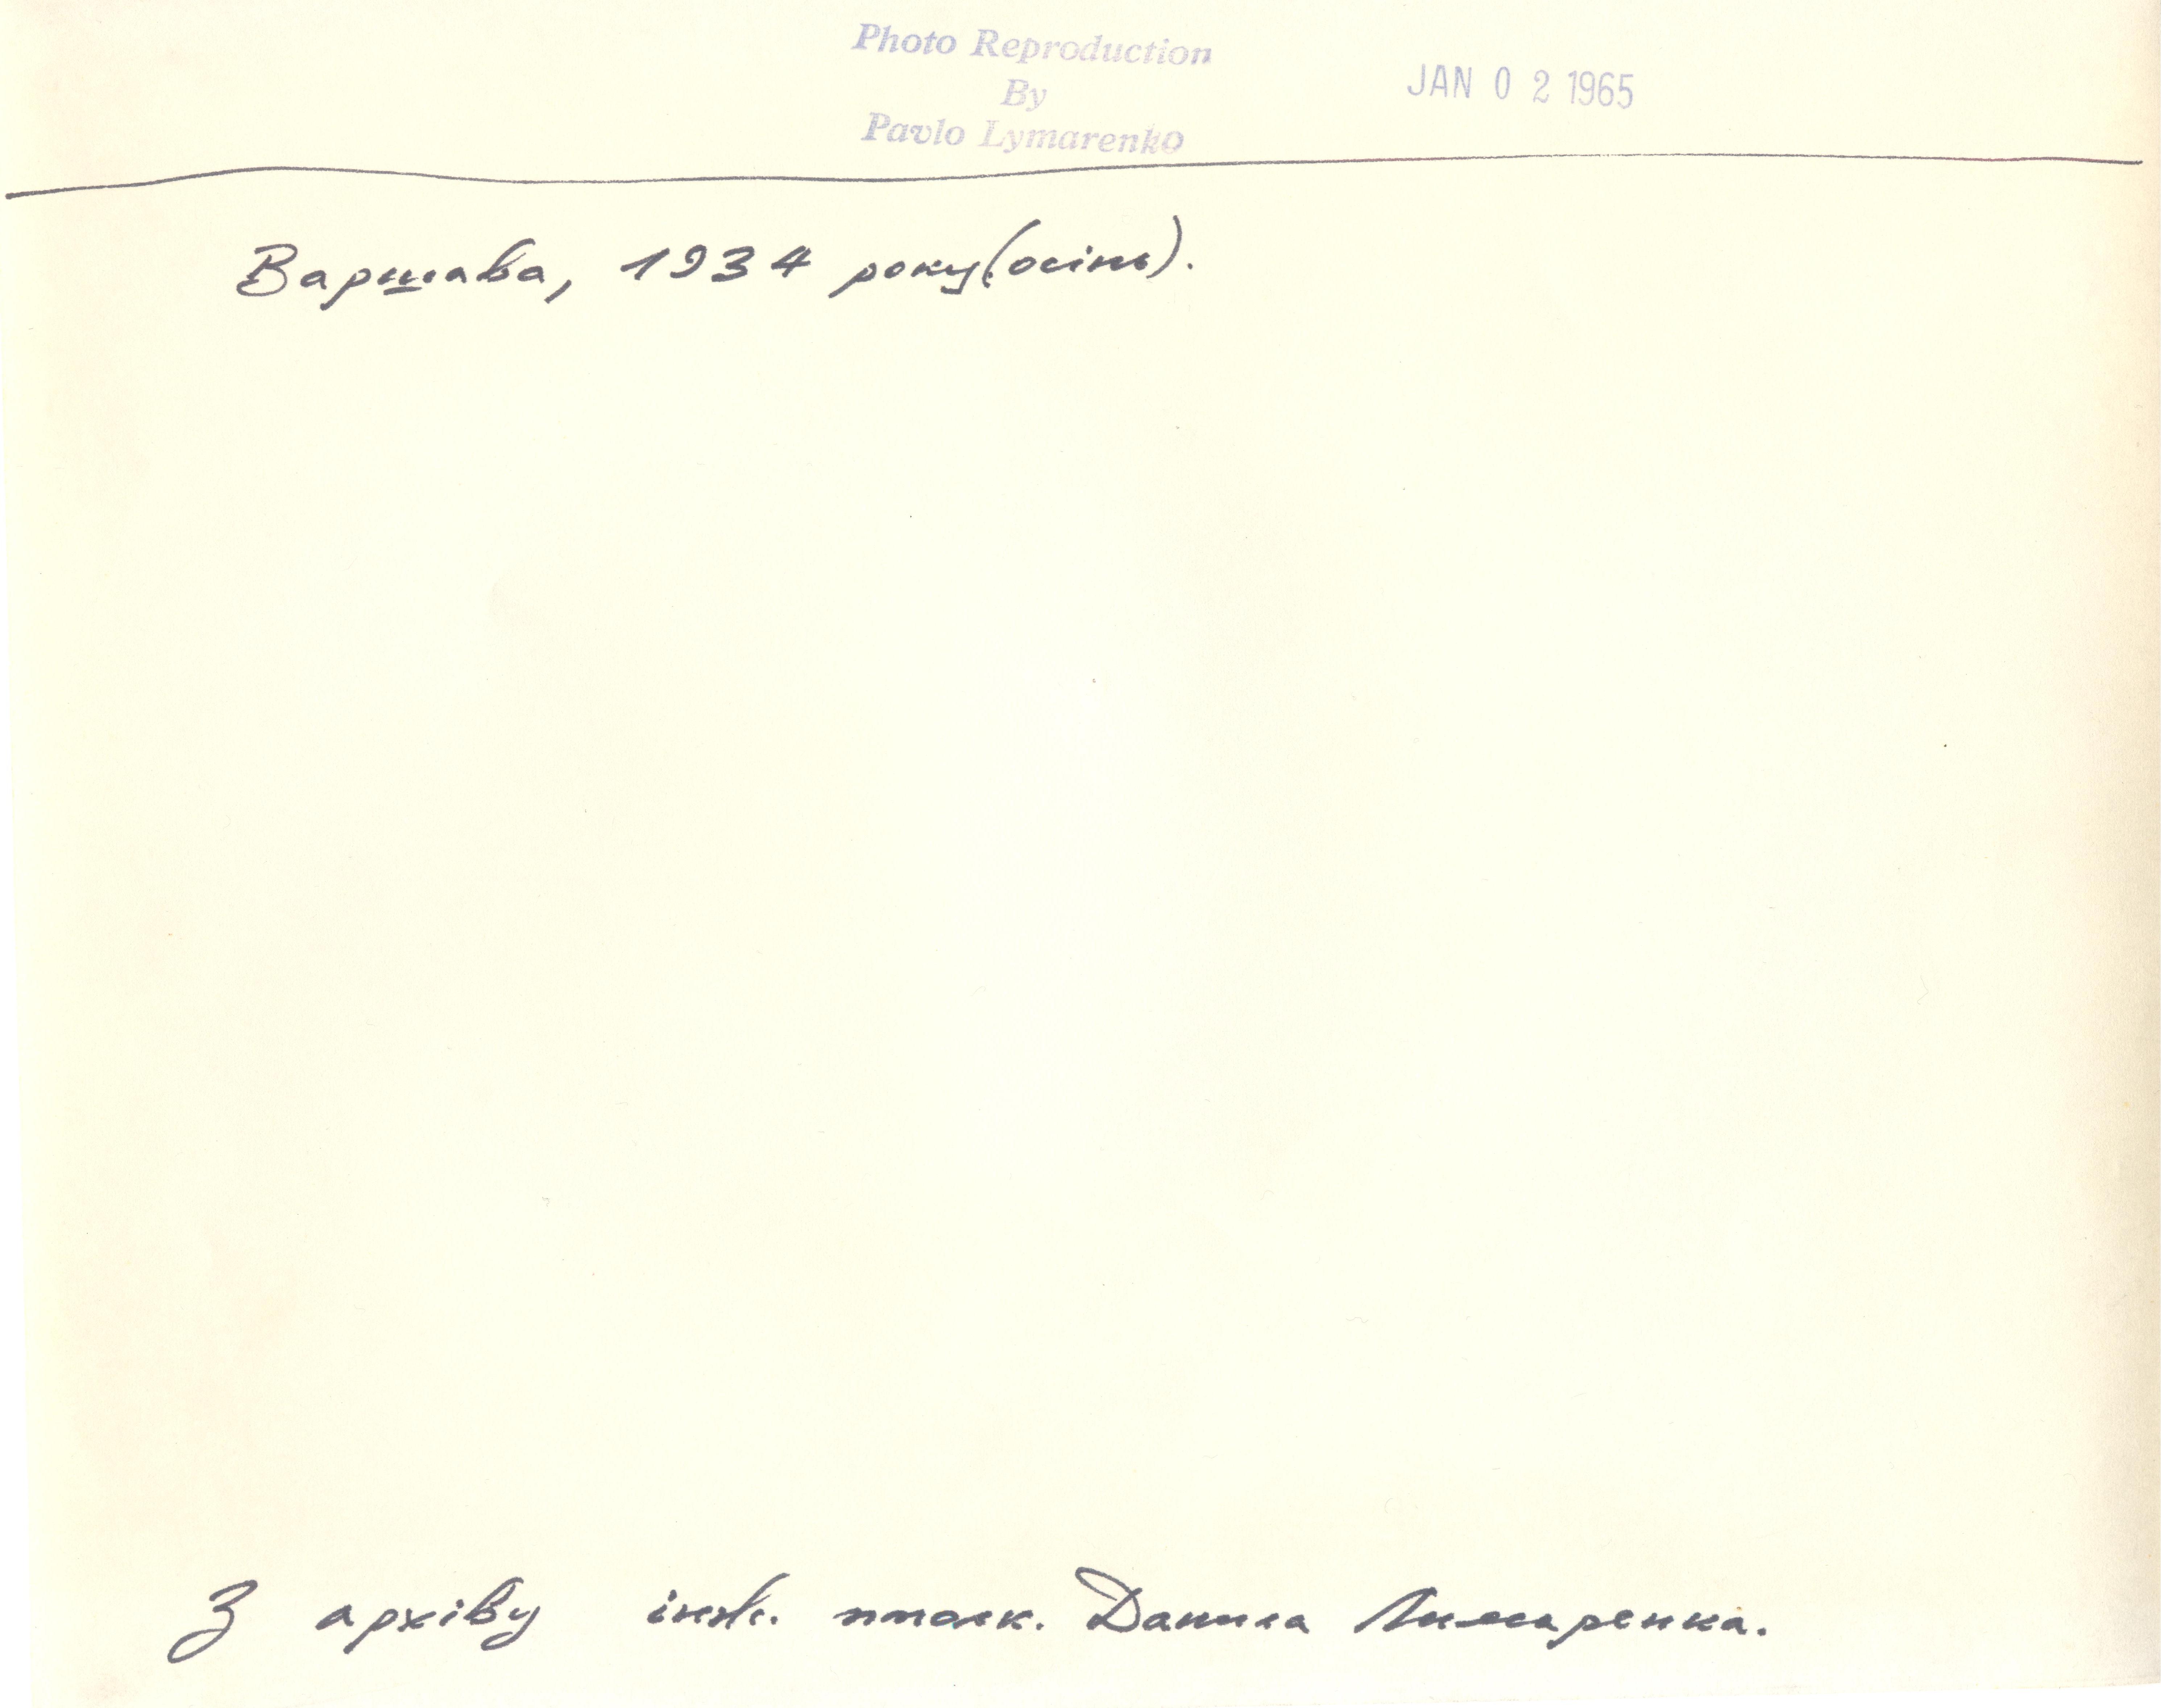 Photo Reproduction
By
Pavlo Lymarenko
JAN 0 2 1965
Варшава, 1934 року (осінь).
З архіву інж. пполк. Данила Лимаренка.